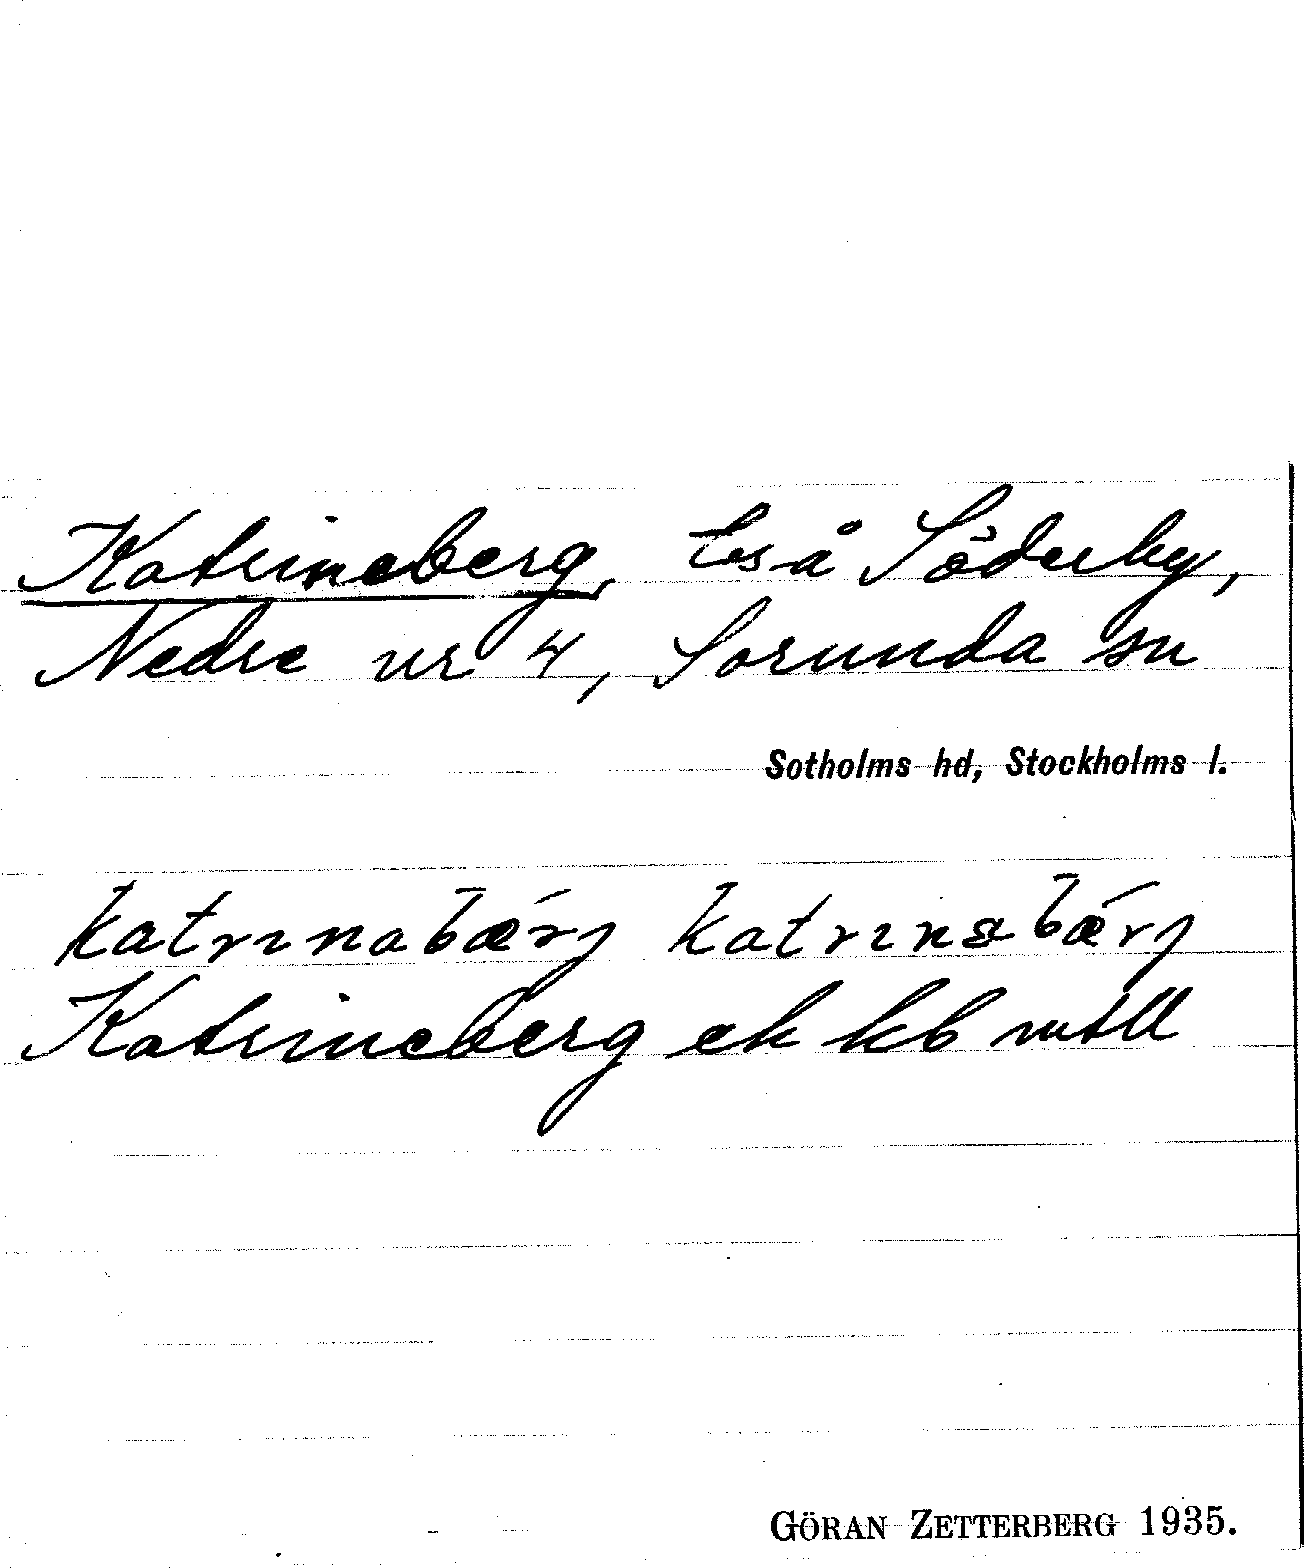 Katrineberg, lsä å Söderby,
Nedre nr 4, Sorunda sn
Sotholms hd, Stockholms l.
katrınabærj katrınsbærj
Katrineberg ek kb mtll
GÖRAN ZETTERBERG 1935.